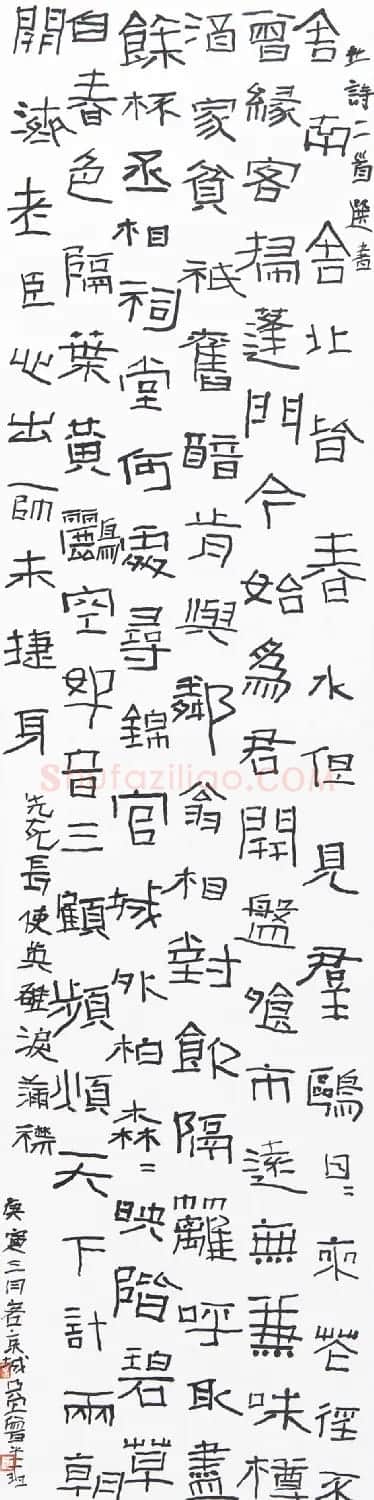 杜詩二首選書
舍南舍北皆春水但見羣鷗日〻來花徑不
曾緣客掃蓬門今始爲君開盤飧市遠無兼味樽
酒家貧祇舊醅肯與鄰翁相對飲隔籬呼取盡
餘杯丞相祠堂何處尋錦官城外柏森〻映階碧草
自春色隔葉黃鸝空好音三顧頻煩天下計兩朝
開濟老臣心出師未捷身
先死長使英雄淚滿襟
庚寅三月客京城
Shufaziliao.COM